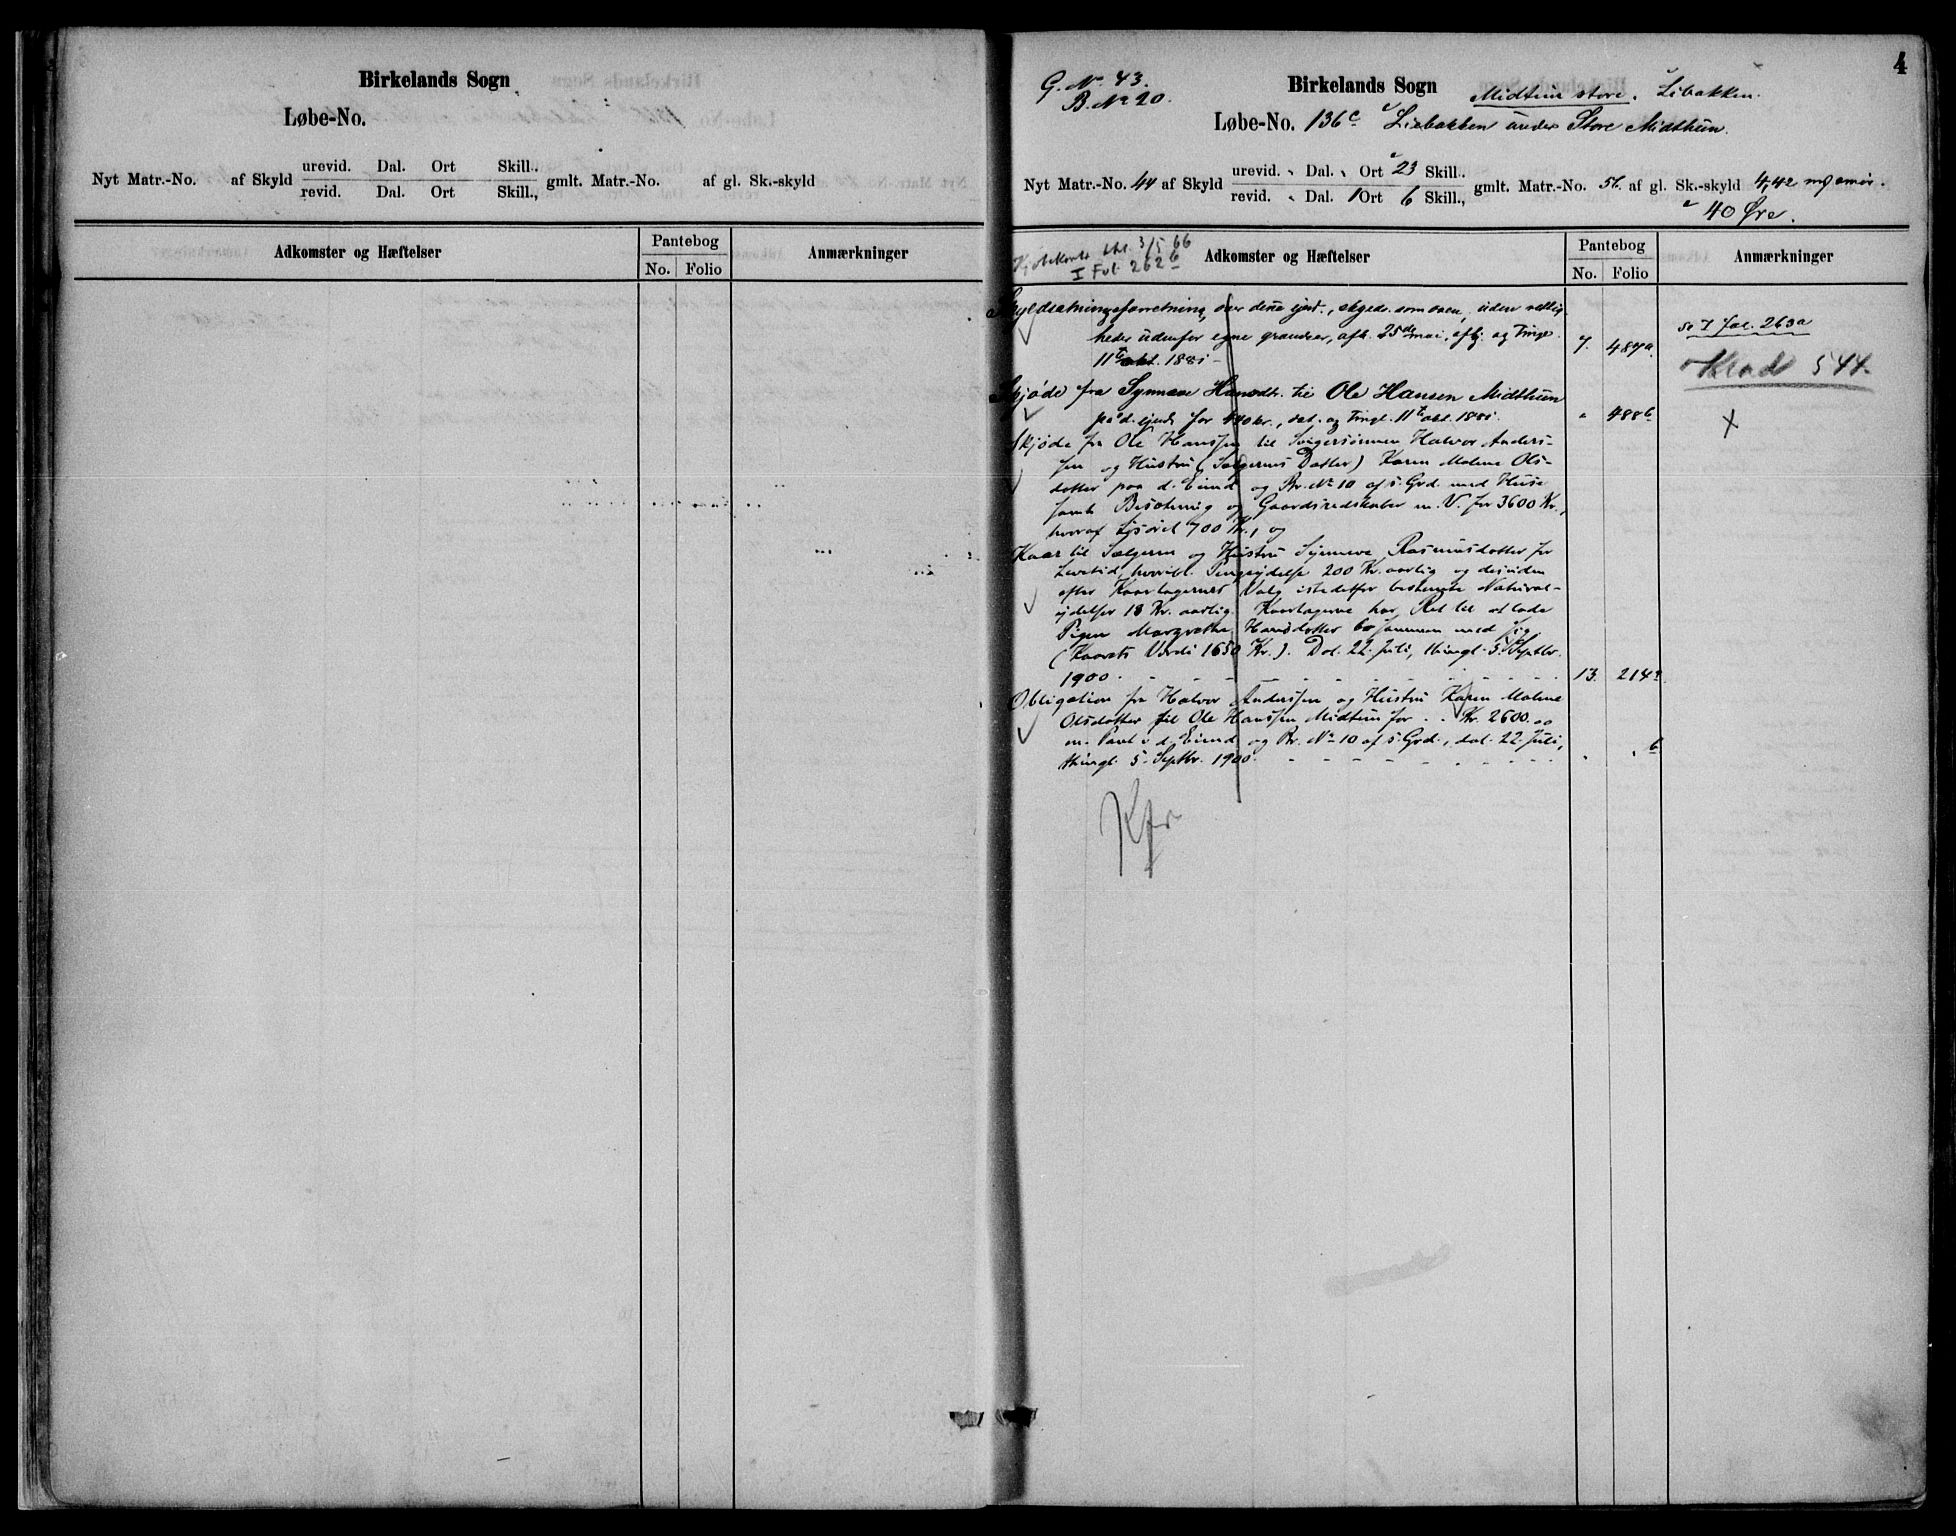 Birkelands Sogn
Løbe-No.
Nyt Matr.-No. af Skyld urevid. Dal. Ort Skill. gmlt. Matr.-No. af gl. Sk.-skyld
revid. Dal. Ort Skill.,
Adkomster og Hæftelser Pantebog Anmærkninger
No. Folio
4
G. No 43.
B. No 20.
Birkelands Sogn Midtun store. Libakken.
Løbe-No. 136c Liebakken under Store Midthun.
Nyt Matr.-No. 44 af Skyld urevid. Dal. Ort 23 Skill. gmlt. Matr.-No. 56. af gl. Sk.-skyld 4,42 mk smør.
revid. Dal. 1 Ort 6 Skill.,
40 Øre.
3/5 66
I Fol. 262b
Adkomster og Hæftelser Pantebog Anmærkninger
No. Folio
Skyldsætningsforretning over denne ejend., uden rettig-
heder udenfor egne grændser, afh. 25de mai, og tingl.
11te okt. 1881 7. 487a.
se I fol. 263a
544
Skjøde fra Synneve Hansdtr. til Ole Hansen Midthun
på d. ejend. for 440 kr., dat. og tingl. 11te okt. 1881. " 488b
X
Skjøde fra Ole Hanssen til Svigersønnen Halvor Anders-
sen og Hustru (Sælgernes Datter) Karen Malene Ols-
datter paa d. Eiend. og Br. No 10 af s. Grd. med Huse
samt Besætning og Gaardsredskaber m. V. for 3600 Kr.,
hvoraf Løsøret 700 Kr., og
Kaar til Sælgeren og Hustru Synneve Rasmusdatter for
Levetid, hvoribl. Pengeydelse 200 Kr. aarlig og desuden
efter Kaartagernes Valg istedetfor bestemte Natural-
ydelser 18 Kr. aarlig. Kaartagerne har Ret til at lade
Pigen Margrethe Hansdatter bo sammen med sig.
(Kaarets Værdi 1650 Kr.). Dat. 22. Juli, thingl. 5. Septbr.
1900. 13. 214a.
Obligation fra Halvor Anderssen og Hustru Karen Malene
Olsdatter til Ole Hanssen Midtun for Kr. 2600.00
m. Pant i d. Eiend. og Br. No 10 af s. Grd., dat. 22. Juli,
thingl. 5. Septbr. 1900. " " b
Kfr